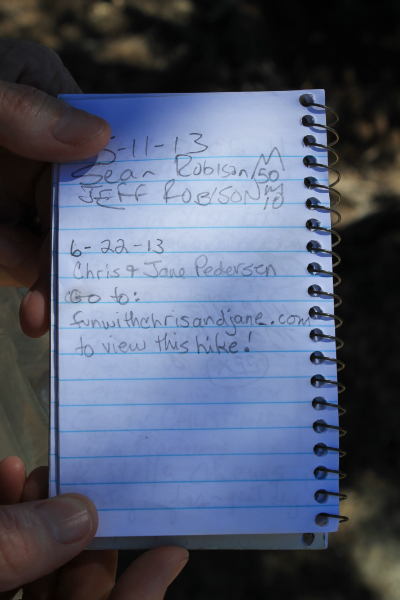 5-11-13
Sean Robison/M50
JEFF ROBISON M10
6-22-13
Chris & Jane Pedersen
Go to:
funwithchrisandjane.com
to view this hike!